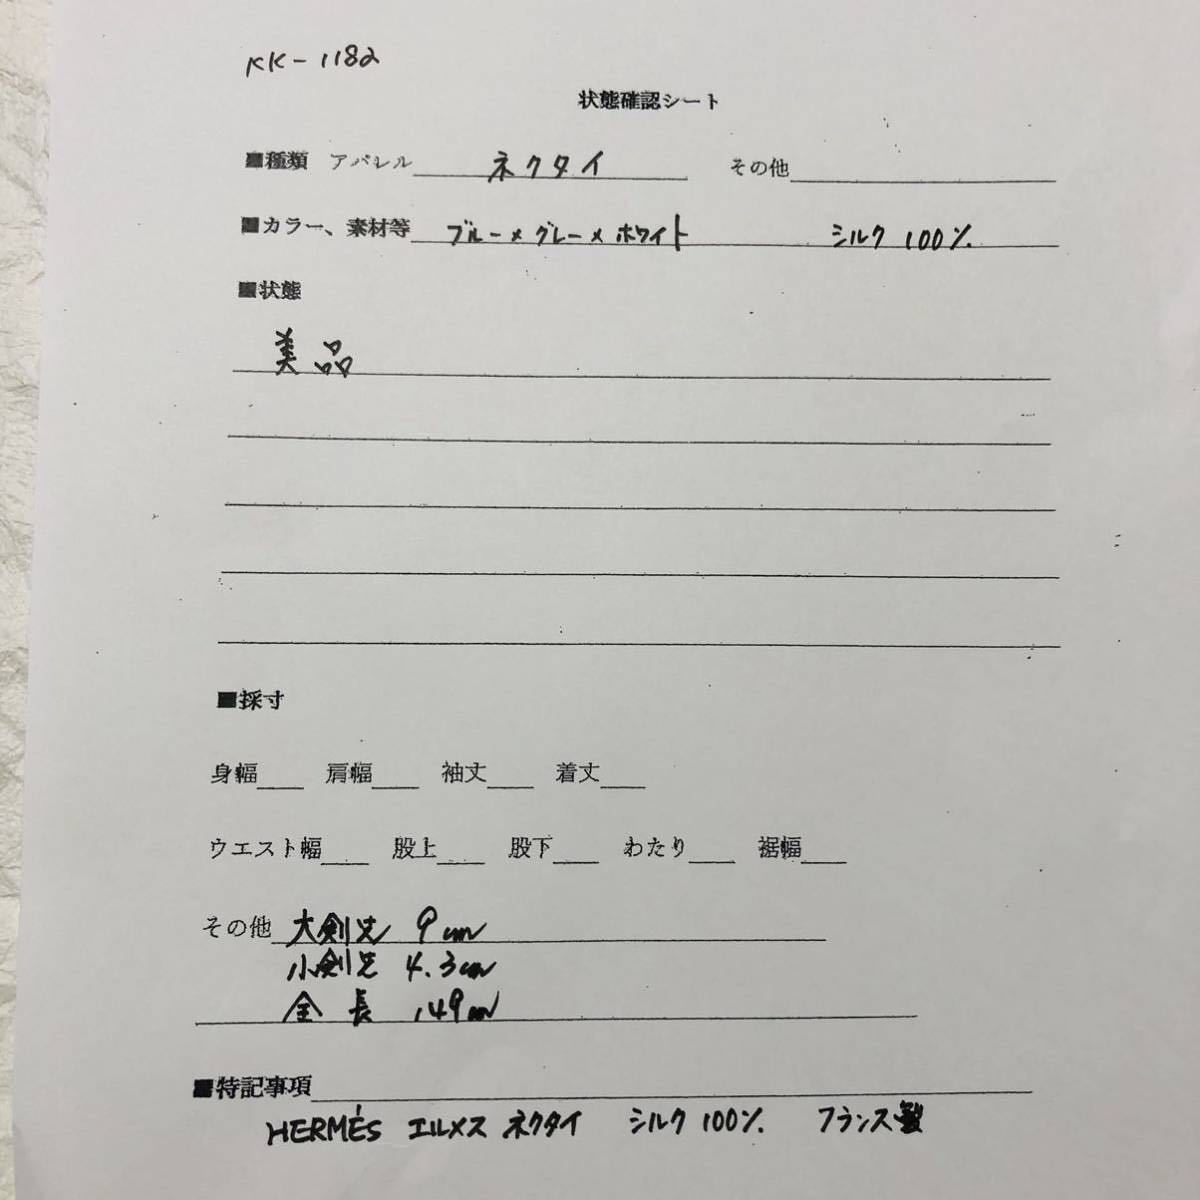 KK-1182
状態確認シート
■種類 アパレル ネクタイ その他
■カラー、素材等 ブルー×グレー×ホワイト シルク 100%
■状態
美品
■採寸
身幅 肩幅 袖丈 着丈
ウエスト幅 股上 股下 わたり 裾幅
その他 大剣先 9cm
小剣先 4.3cm
全長 149cm
■特記事項
HERMÈS エルメス ネクタイ シルク 100% フランス製